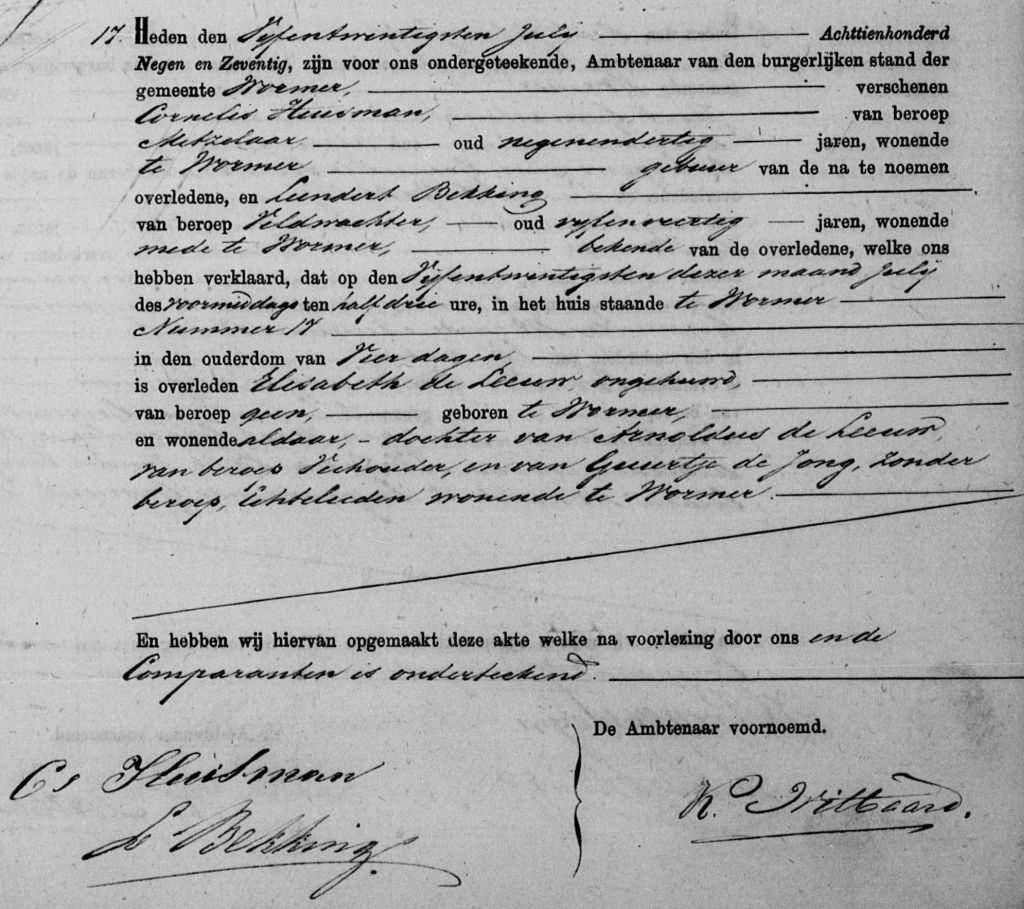 17. Heden den Vyfentwentigsten July Achttienhonderd
Negen en Zeventig, zijn voor ons ondergeteekende, Ambtenaar van den burgerlijken stand der
gemeente Wormer, verschenen
Cornelis Huisman, van beroep
Metzelaar, oud negenendertig jaren, wonende
te Wormer gebuur van de na te noemen
overledene, en Leendert Bekking
van beroep Veldwachter, oud vyfenveertig jaren, wonende
mede te Wormer, bekende van de overledene, welke ons
hebben verklaard, dat op den Vyfentwentigsten dezer maand July
des voormiddags ten half drie ure, in het huis staande te Wormer
Nummer 17
in den ouderdom van Vier dagen,
is overleden Elisabeth de Leeuw, ongehuwd,
van beroep geen, geboren te Wormer,
en wonende aldaar, - dochter van Arnoldus de Leeuw,
van beroep Veehouder, en van Guurtje de Jong, zonder
beroep, Echtelieden wonende te Wormer.
En hebben wij hiervan opgemaakt deze akte welke na voorlezing door ons en de
Comparanten is onderteekend.
De Ambtenaar voornoemd.
Cs Huisman
L Bekking